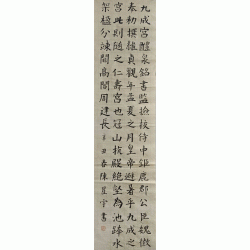 九成宮醴泉銘書監檢校侍中鉅鹿郡公臣魏徵
奉勅撰維貞觀六年孟夏之月皇帝避暑乎九成之
宮此則隨之仁壽宮也冠山抗殿絕壑為池跨水
架楹分竦闕高閣周建長